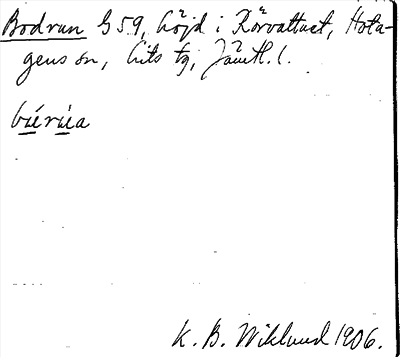 Bodrun G59, höjd i Rörvattnet, Hota-
gens sn, Lits tg, Jämtl. l.
búérúéa
K. B. Wiklund 1906.